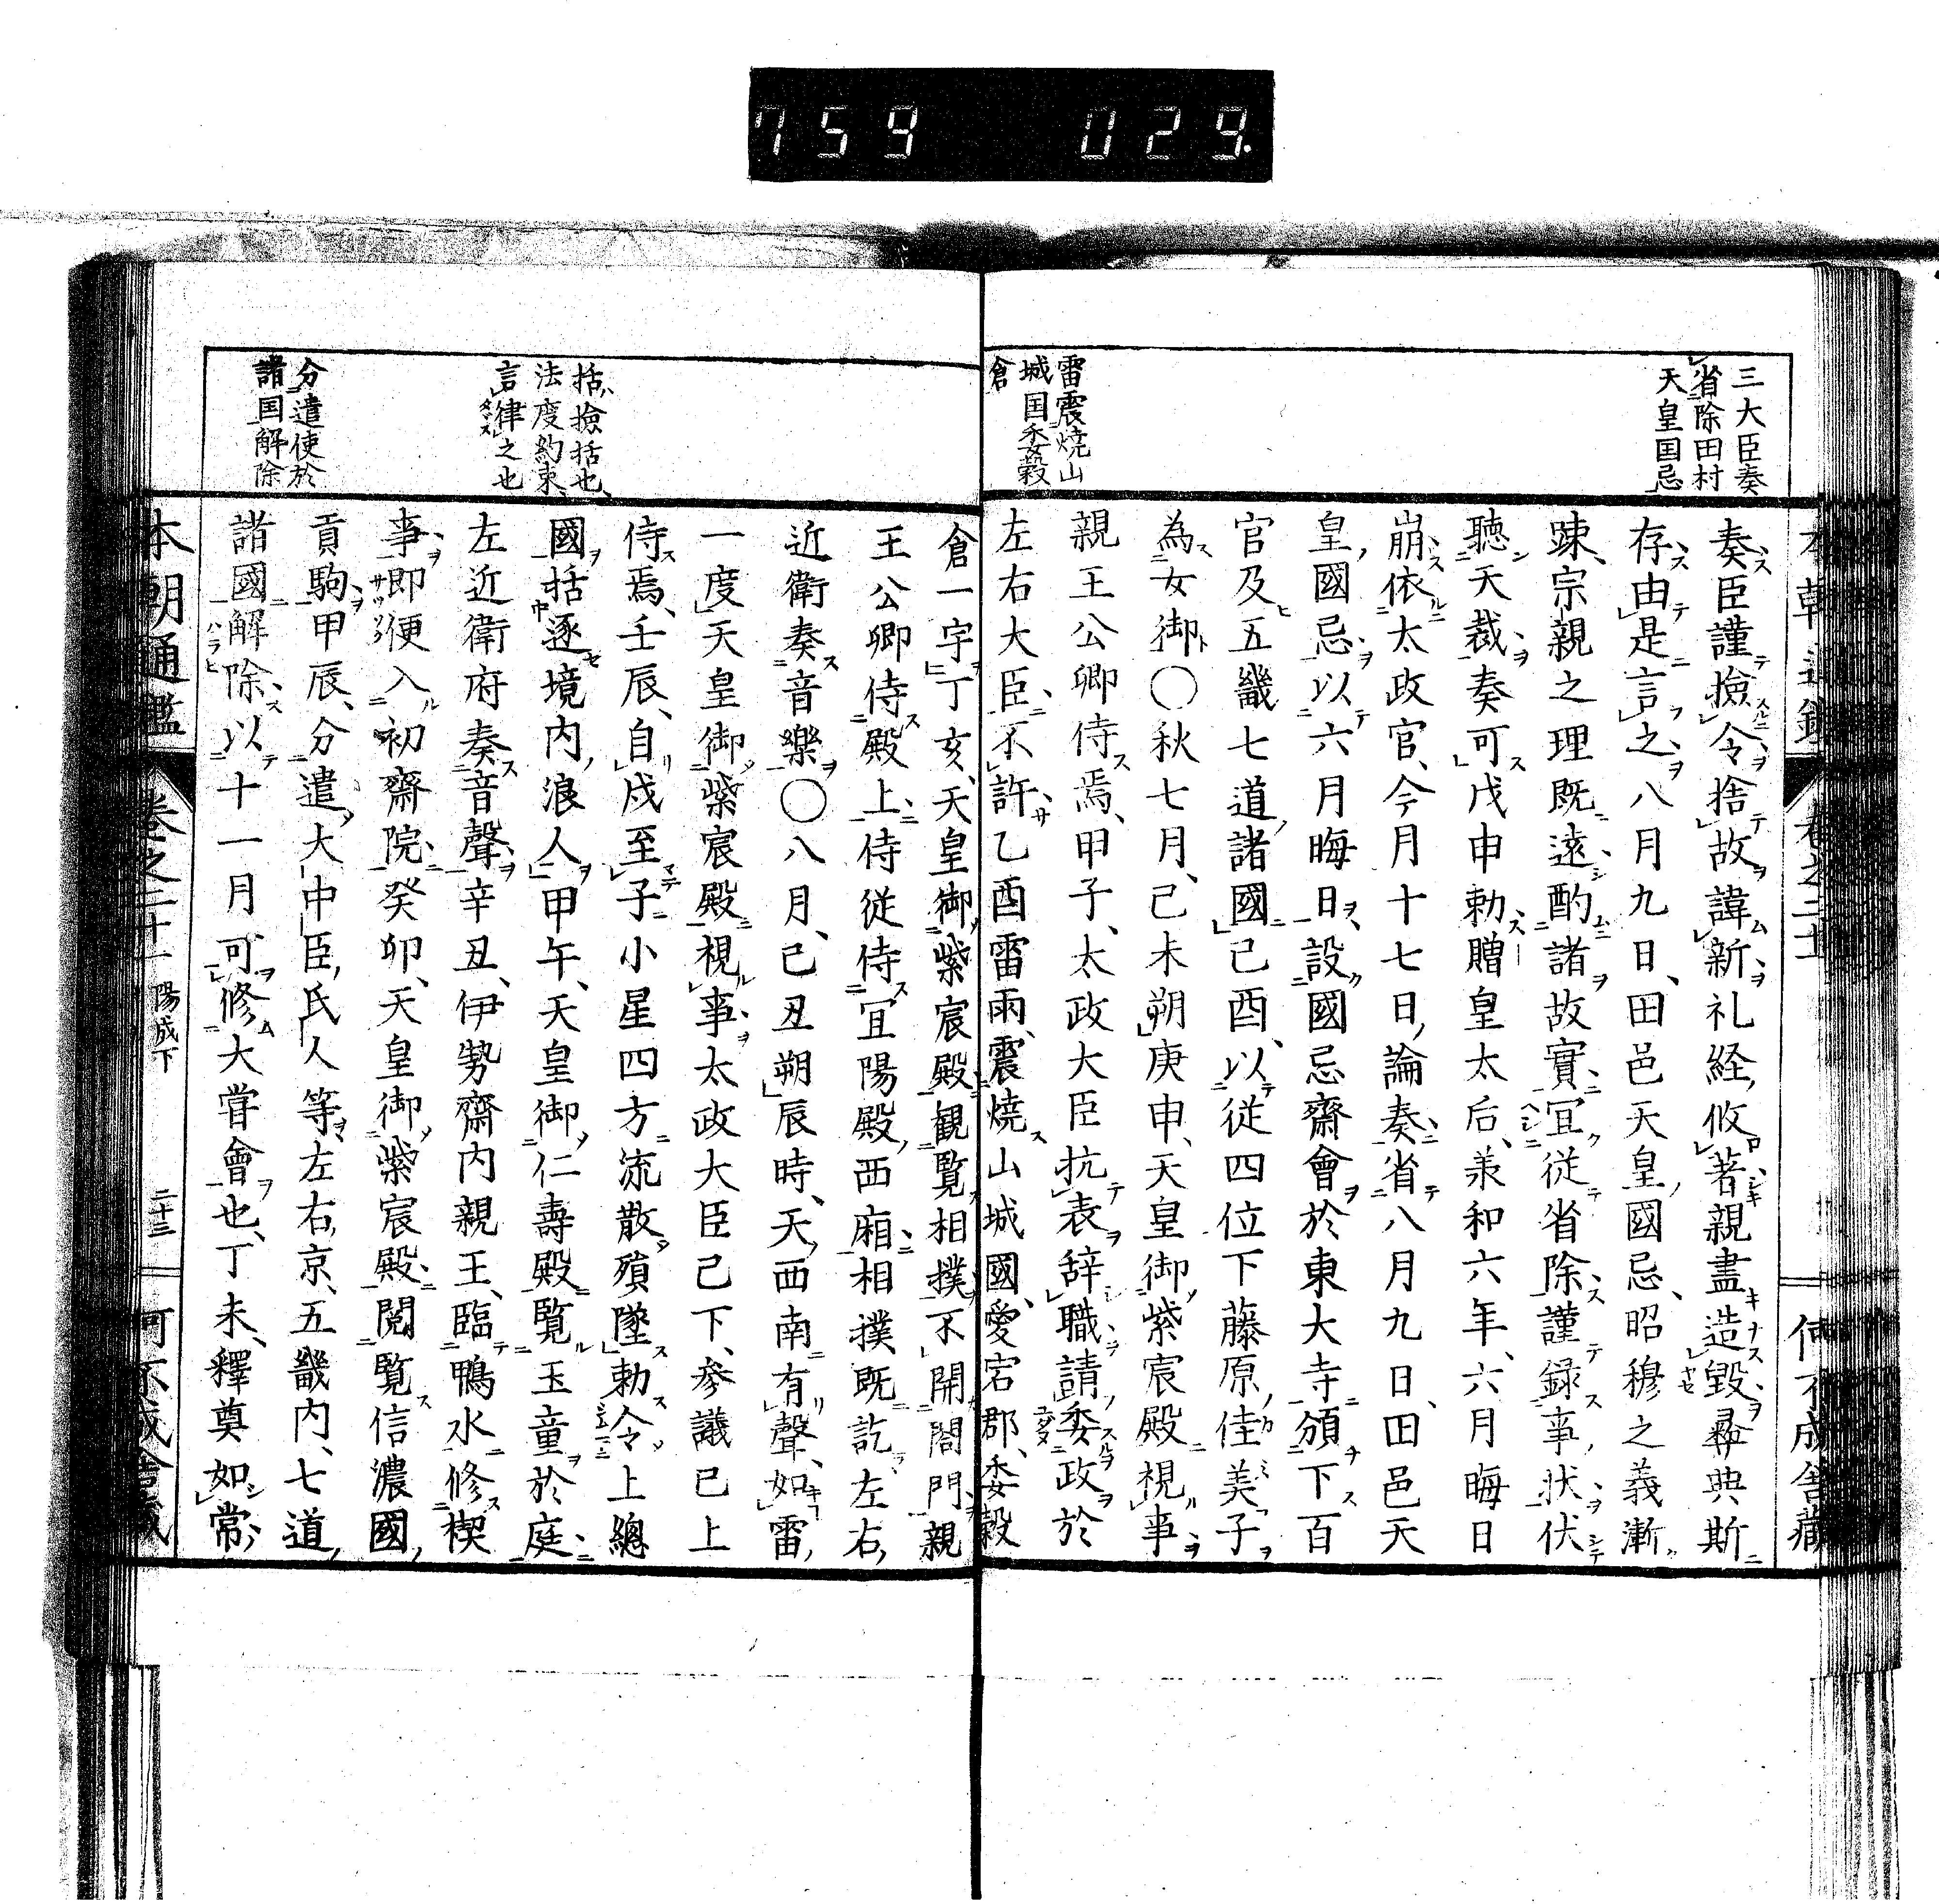 759 029.
三大臣奏
省除田村
天皇国忌
雷震焼山
城国委穀
倉
奏臣謹撿令捨故諱新礼経攸著親盡造毀彝典斯
存由是言之八月九日田邑天皇國忌昭穆之義漸
踈宗親之理既遠酌諸故實宜従省除謹録事状伏
聴天裁奏可戊申勅贈皇太后兼和六年六月晦日
崩依太政官今月十七日論奏省八月九日田邑天
皇國忌以六月晦日設國忌齋會於東大寺頒下百
官及五畿七道諸國己酉以従四位下藤原佳美子
為女御〇秋七月己未朔庚申天皇御紫宸殿視事
親王公卿侍焉甲子太政大臣抗表辞職請委政於
左右大臣不許乙酉雷雨震焼山城國愛宕郡委穀
括撿括也
法度約束
言律之也
分遣使於
諸国解除
倉一宇丁亥天皇御紫宸殿観覧相撲不開閤門親
王公卿侍殿上侍従侍宜陽殿西廂相撲既訖左右
近衛奏音樂〇八月己丑朔辰時天西南有聲如雷
一度天皇御紫宸殿視事太政大臣已下参議已上
侍焉壬辰自戍至子小星四方流散殞墜勅令上總
國括逐境内浪人甲午天皇御仁壽殿覧玉童於庭
左近衛府奏音聲辛丑伊勢齋内親王臨鴨水修禊
事即便入初齋院癸卯天皇御紫宸殿閲覧信濃國
貢駒甲辰分遣大中臣氏人等左右京五畿内七道
諸國解除以十一月可修大甞會也丁未釋奠如常
本朝通鑑 巻之二十一 陽成下 二十三